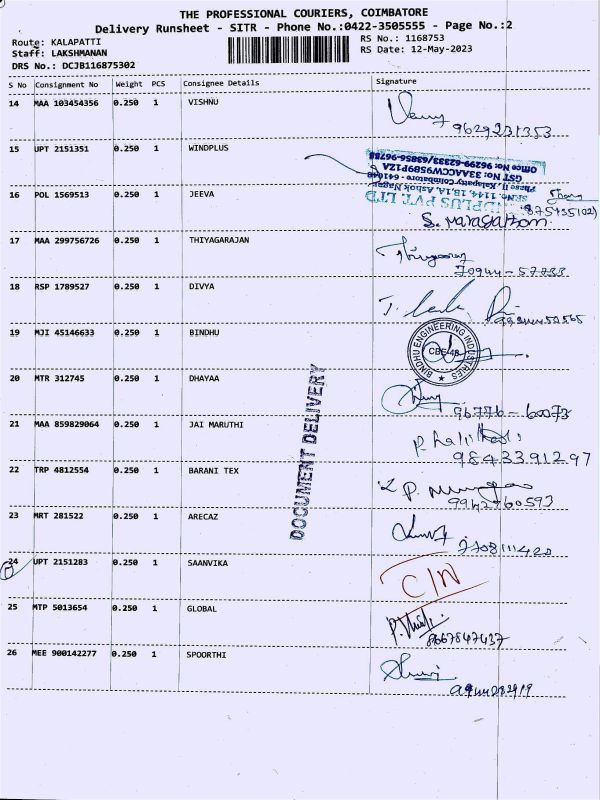 THE PROFESSIONAL COURIERS, COIMBATORE
Delivery Runsheet - SITR - Phone No.:0422-3505555 - Page No.:2
Route: KALAPATTI
Staff: LAKSHMANAN
DRS No.: DCJB116875302
RS No.: 1168753
RS Date: 12-May-2023
S No Consignment No Weight PCS Consignee Details Signature
14 MAA 103454356 0.250 1 VISHNU
9629231353
15 UPT 2151351 0.250 1 WINDPLUS
Office No: 96299-62333/63856-96788
GST No: 33AACCW9589P1ZA
Phase II, Kalapaty Coimbatore - 641048
SF.No. 114/6, 1B/1A, Ashok Nagar
PVT. LTD
16 POL 1569513 0.250 1 JEEVA
17 MAA 299756726 0.250 1 THIYAGARAJAN
70944-57733
18 RSP 1789527 0.250 1 DIVYA
19 MJI 45146633 0.250 1 BINDHU
BINDHU ENGINEERING INDUSTRIES
CBE-48
20 MTR 312745 0.250 1 DHAYAA
96776-60073
21 MAA 859829064 0.250 1 JAI MARUTHI
9843391297
22 TRP 4812554 0.250 1 BARANI TEX
9942760593
DOCUMENT DELIVERY
23 MRT 281522 0.250 1 ARECAZ
7708111420
24 UPT 2151283 0.250 1 SAANVIKA
C/N
25 MTP 5013654 0.250 1 GLOBAL
8667847437
26 MEE 900142277 0.250 1 SPOORTHI